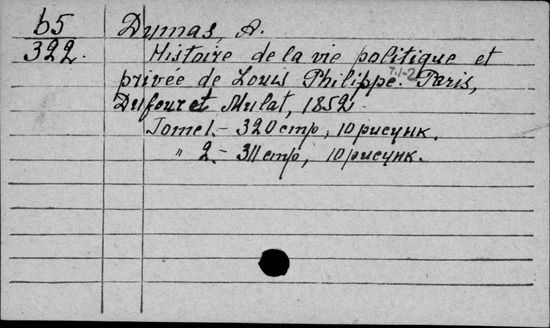 b5
322.
Dumas, A.
Histoire de la vie politique et
privée de Louis Philippe. T.1-2 Paris,
Dufour et Mulat, 1852.
Tome 1.- 320 стр, 10 рисунк.
" 2.- 311 стр, 10 рисунк.